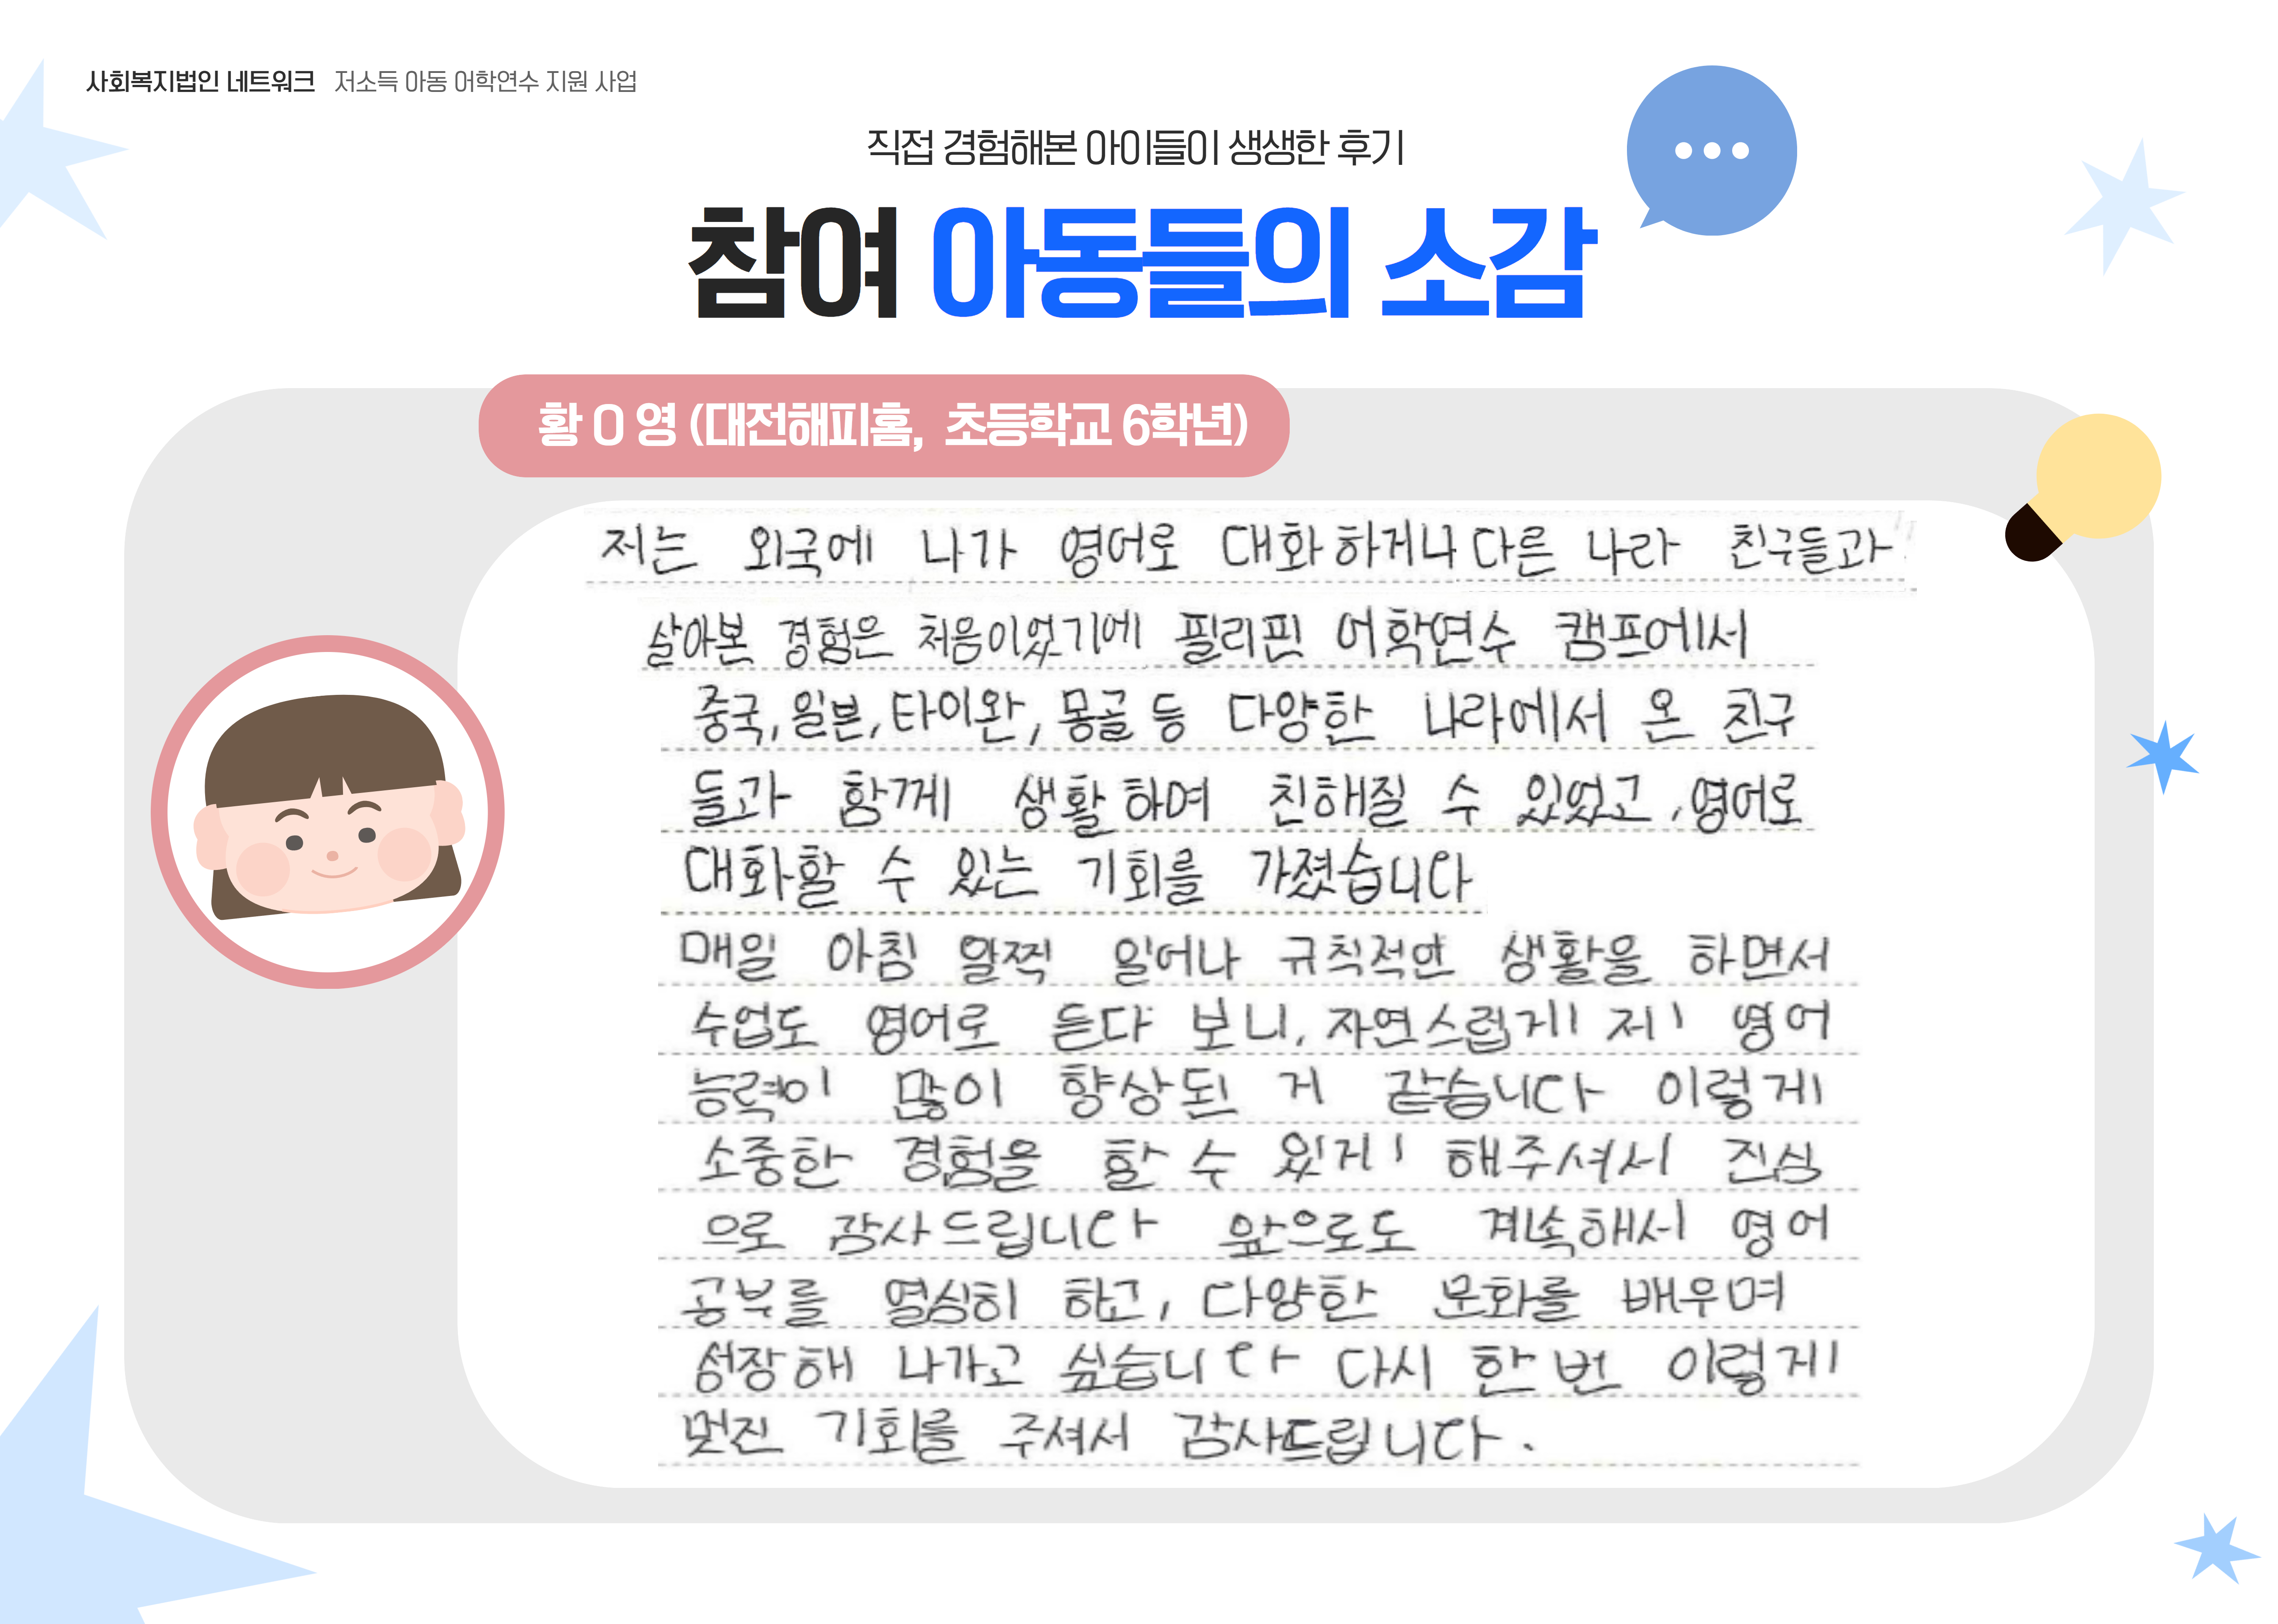 사회복지법인 네트워크 저소득 아동 어학연수 지원 사업
직접 경험해본 아이들이 생생한 후기
참여 아동들의 소감
황 O 영 (대전해피홈, 초등학교 6학년)
저는 외국에 나가 영어로 대화하거나 다른 나라 친구들과
살아본 경험은 처음이었기에 필리핀 어학연수 캠프에서
중국, 일본, 타이완, 몽골 등 다양한 나라에서 온 친구
들과 함께 생활하며 친해질 수 있었고, 영어로
대화할 수 있는 기회를 가졌습니다
매일 아침 일찍 일어나 규칙적인 생활을 하면서
수업도 영어로 듣다 보니, 자연스럽게 제 영어
능력이 많이 향상된 거 같습니다 이렇게
소중한 경험을 할 수 있게 해주셔서 진심
으로 감사드립니다 앞으로도 계속해서 영어
공부를 열심히 하고, 다양한 문화를 배우며
성장해 나가고 싶습니다 다시 한번 이렇게
멋진 기회를 주셔서 감사드립니다.